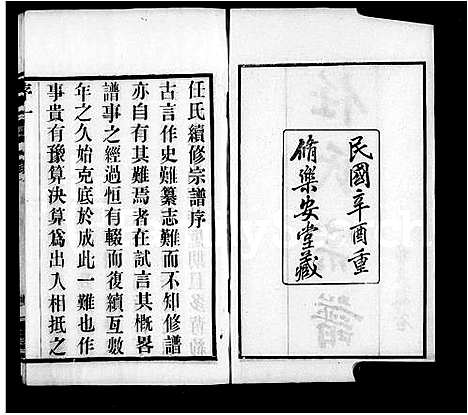 民國辛酉重
脩樂安堂藏
任氏續修宗譜序
古言作史難纂志難而不知修譜
亦自有其難焉者在試言其概畧
譜事之經過恒有輟而復續互數
年之久始克底於成此一難也作
事貴有豫算决算爲出入相抵之
序一